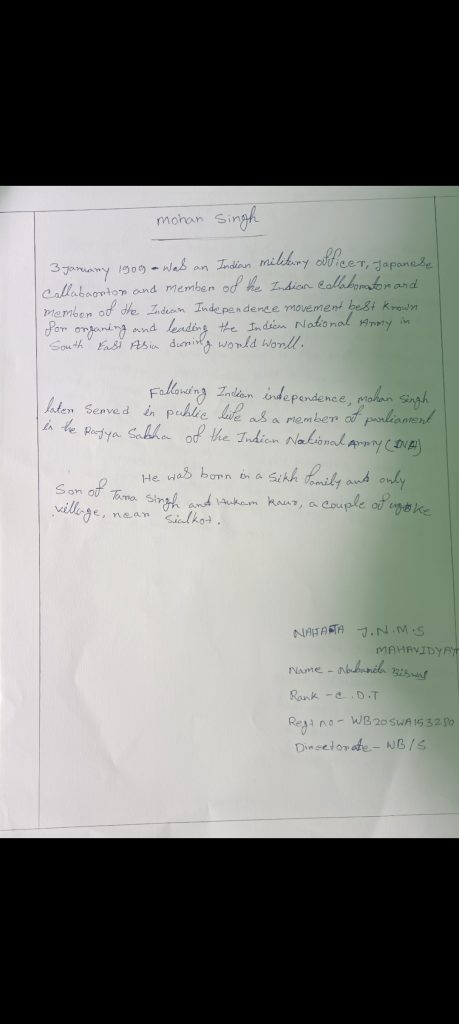 Mohan Singh
3 January 1909 - Was an Indian military officer, Japanese
Callabaorton and member of the Indian Collaborator and
Member of the Indian Independence movement best known
for organing and leading the Indian National Army in
South East Asia during world Worll.
Fallowing Indian independence, Mohan Singh
later served in public life as a member of parliament
in the Rajya Sabha of the Indian National Army (INA)
He was born in a Sikh family and only
Son of Tara Singh and Hukam Kaur, a couple of ugoke
village, near Sialkot.
NAHATA J.N.M.S
MAHAVIDYAY
Name - Biswas
Rank - C.D.T
Regt no - WB20SWA153280
Directorate - WB/S